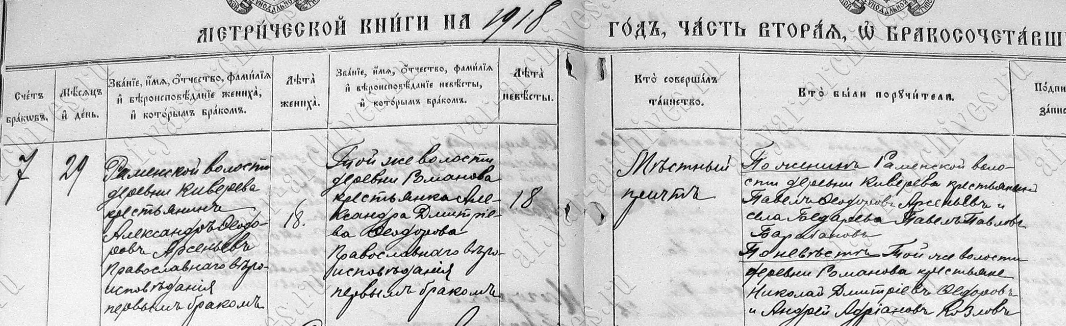 МЕТРИЧЕСКОЙ КНИГИ НА 1918 ГОДЪ, ЧАСТЬ ВТОРАЯ, Ѿ БРАКОСОЧЕТАВШ
Счетъ браковъ.
Мѣсяцъ и день.
Званіе, имя, отчество, фамилія
и вѣроисповѣданіе жениха,
и которымъ бракомъ.
Лѣта
жениха.
Званіе, имя, отчество, фамилія
и вѣроисповѣданіе невѣсты,
и которымъ бракомъ.
Лѣта
невѣсты.
Кто совершалъ
таинство.
Кто были поручители.
Подпи
запис
7
29
Раменской волости
деревни Киверева
крестьянинъ
Александръ Ѳеодо-
ровъ Арсеньевъ
православнаго вѣро-
исповѣданія
первымъ бракомъ
18.
Той же волости
деревни Романова
крестьянка Але-
ксандра Дмитрі-
ева Ѳеодорова
православнаго вѣро-
исповѣданія
первымъ бракомъ
18
Мѣстный
причтъ
По женихѣ: Раменской воло-
сти деревни Киверева крестьянинъ
Павелъ Ѳеодоровъ Арсеньевъ и
села Павелъ Павловъ
По невѣстѣ: Той же волости
деревни Романова крестьяне
Николай Дмитріевъ Ѳедоровъ
и Андрей Адріановъ Козловъ